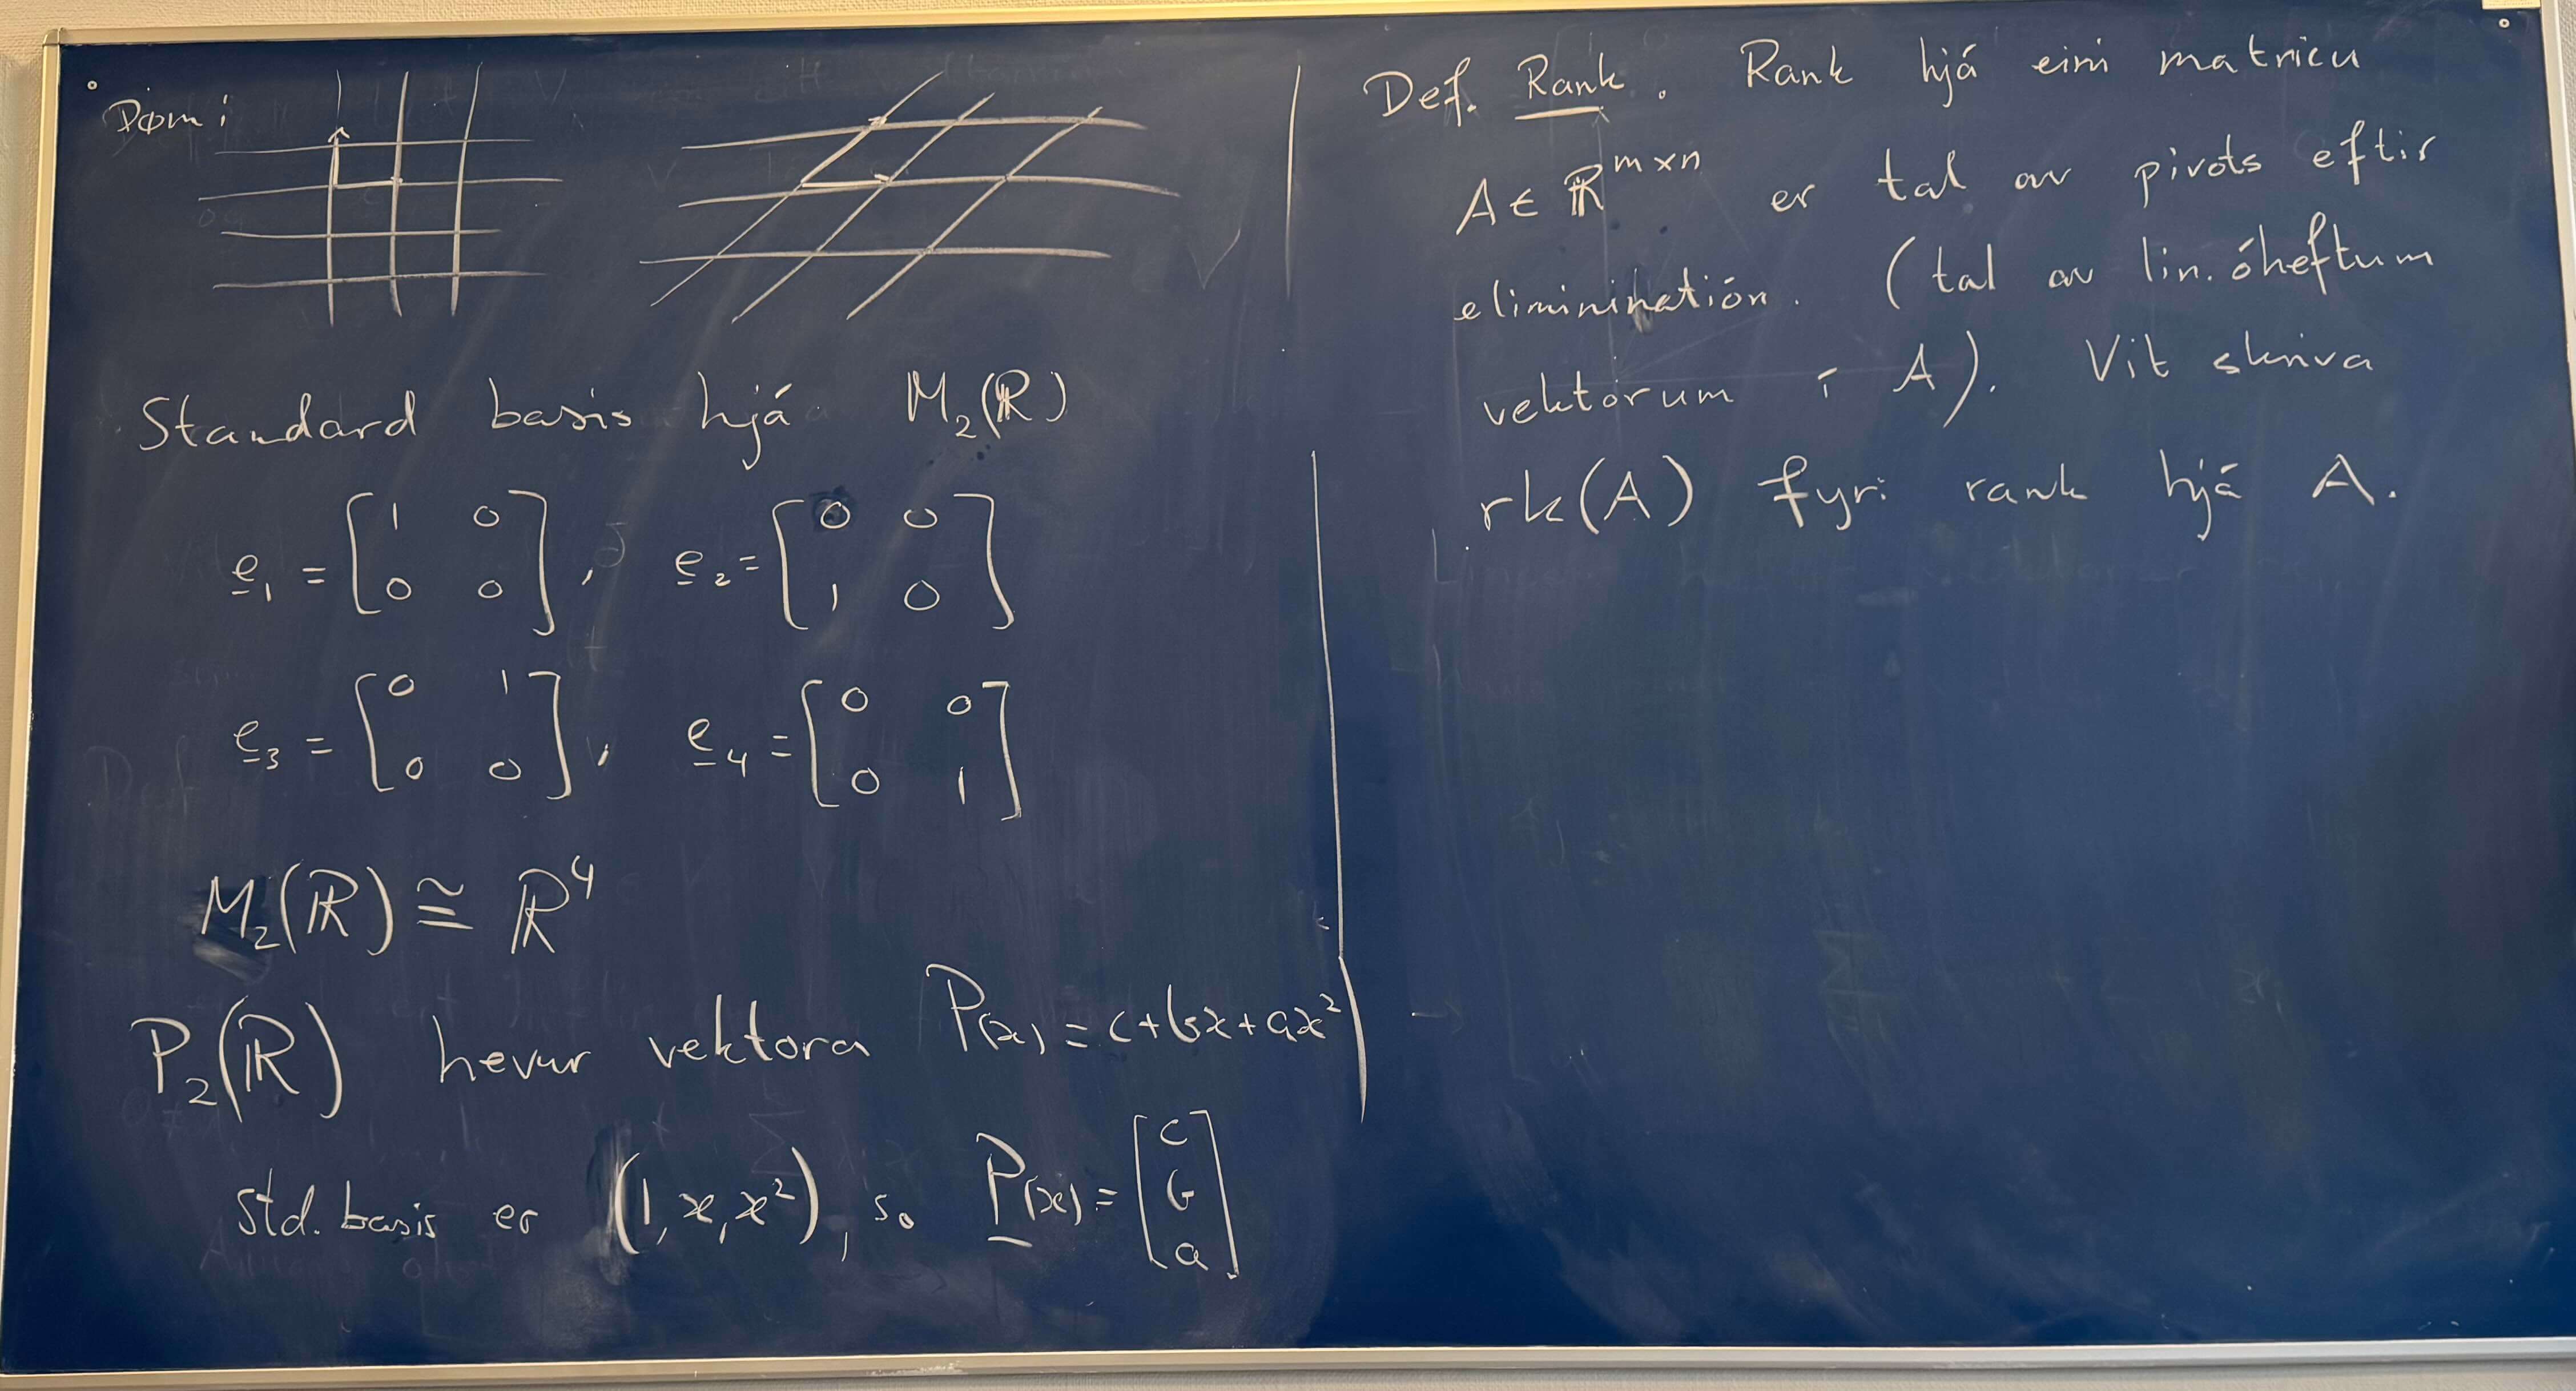 Dømi
Standard basis hjá M₂(ℝ)
e₁ = [1 0; 0 0], e₂ = [0 0; 1 0]
e₃ = [0 1; 0 0], e₄ = [0 0; 0 1]
M₂(ℝ) ≅ ℝ⁴
P₂(ℝ) hevur vektora P(x) = c+bx+ax²
std. basis er (1, x, x²), so P(x) = [c; b; a]
Def. Rank. Rank hjá eini matricu
A ∈ ℝ^{m×n} er tal av pivots eftir
eliminination. (tal av lin. óheftum
vektorum í A). Vit skriva
rk(A) fyri rank hjá A.